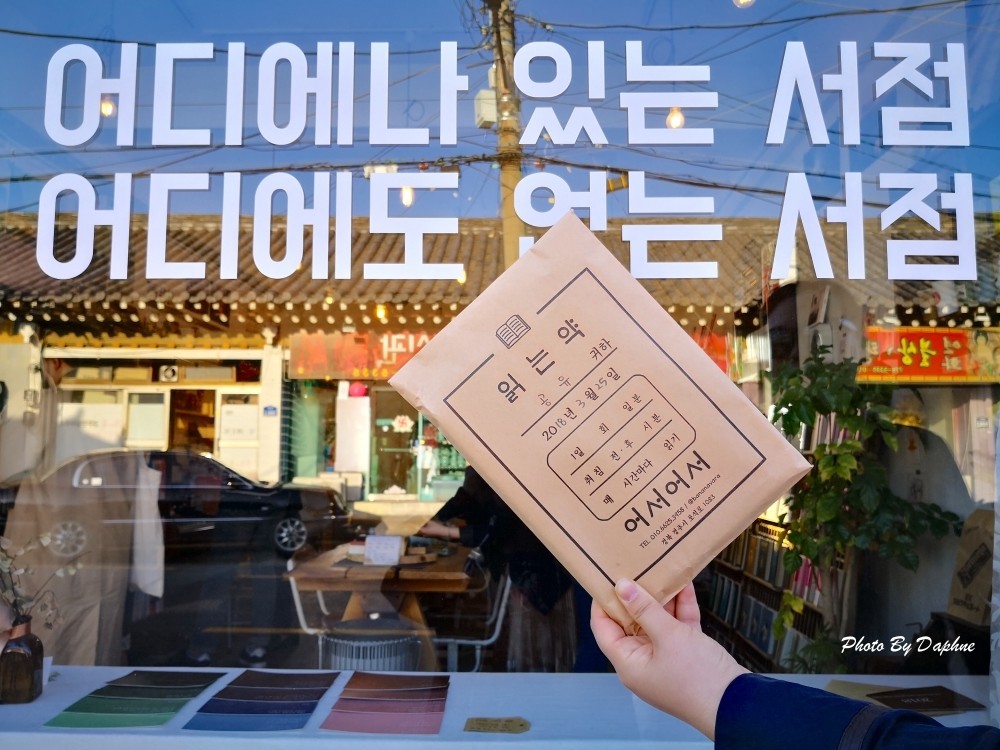 어디에나 있는 서점
어디에도 없는 서점
읽는약
공유 귀하
2018년 3월 25일
1일 회 일분
아침 전·후 시 분
매 시간마다 읽기
어서어서
경북 경주시 포석로 1083
Photo By Daphne